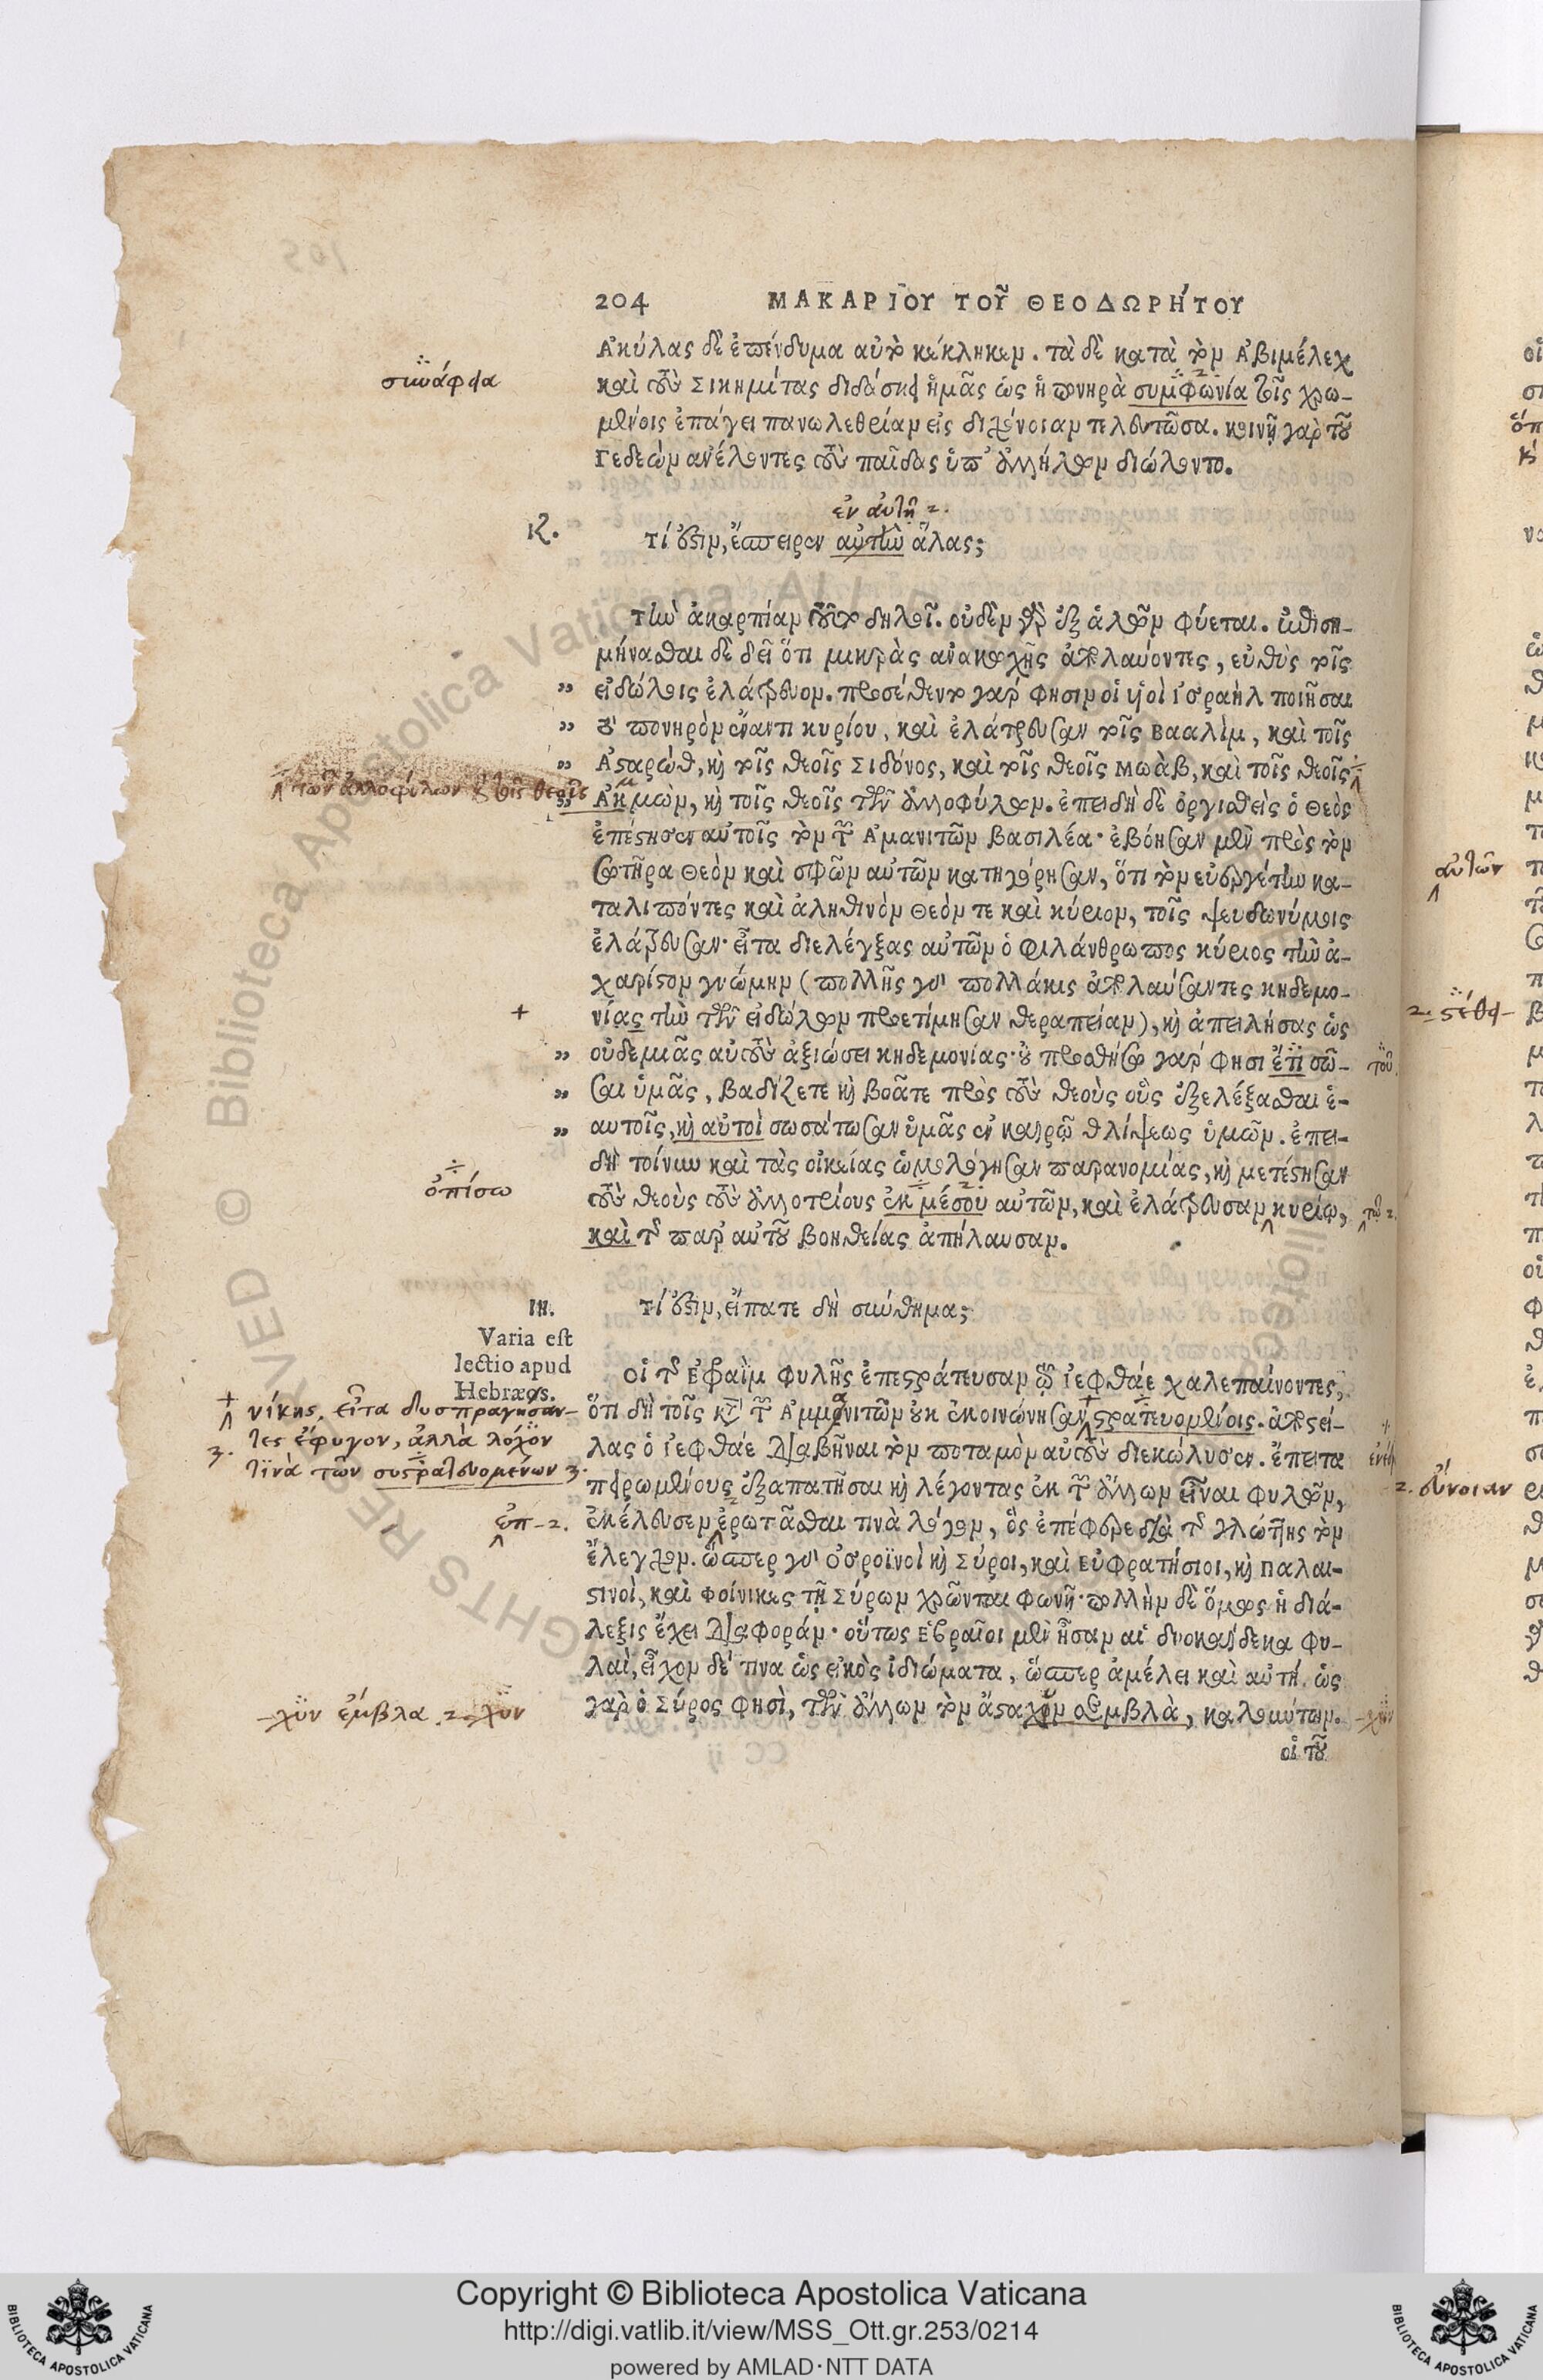 204 ΜΑΚΑΡΙΟΥ ΤΟΥ͂ ΘΕΟΔΩΡΉΤΟΥ
Ἀκύλας δὲ ἐπένδυμα αὐτὸ κέκληκεν. τὰ δὲ κατὰ τὸν Ἀβιμέλεχ
συνάφεια
καὶ τοὺς Σικημίτας διδάσκει ἡμᾶς ὡς ἡ πονηρὰ συμφωνία τοῖς χρω-
μένοις ἐπάγει πανωλεθρίαν εἰς διχόνοιαν τελευτῶσα. κοινῇ γὰρ τοῦ
Γεδεὼν ἀνέλοντες τοὺς παῖδας ὑπ' ἀλλήλων διώλοντο.
ἐν αὐτῇ 2.
ΙΖ. Τί ἐστιν, ἔσπειρεν αὐτὴν ἅλας;
Τὴν ἀκαρπίαν τοῦτο δηλοῖ. οὐδὲν γὰρ ἐξ ἁλῶν φύεται. ἐπιση-
μήνασθαι δὲ δεῖ ὅτι μικρᾶς ἀνακωχῆς ἀπολαύοντες, εὐθὺς τοῖς
„ εἰδώλοις ἐλάτρευον. προσέθεντο γάρ φησιν οἱ υἱοὶ Ἰσραὴλ ποιῆσαι
„ τὸ πονηρὸν ἔναντι κυρίου, καὶ ἐλάτρευσαν τοῖς Βααλὶμ, καὶ τοῖς
„ Ἀσταρὼθ, καὶ τοῖς θεοῖς Σιδόνος, καὶ τοῖς θεοῖς Μωὰβ, καὶ τοῖς θεοῖς
τῶν ἀλλοφύλων καὶ τοῖς θεοῖς
„ Ἀκμὼν, καὶ τοῖς θεοῖς τῶν ἀλλοφύλων. ἐπειδὴ δὲ ὀργισθεὶς ὁ Θεὸς
ἐπέστησεν αὐτοῖς τὸν τῶν Ἀμανιτῶν βασιλέα· ἐβόησαν μὲν πρὸς τὸν
σωτῆρα Θεὸν καὶ σφῶν αὐτῶν κατηγόρησαν, ὅτι τὸν εὐεργέτην κα-
ταλιπόντες καὶ ἀληθινὸν Θεόν τε καὶ κύριον, τοῖς ψευδωνύμοις
ἐλάτρευσαν· εἶτα διελέγξας αὐτῶν ὁ φιλάνθρωπος κύριος τὴν ἀ-
χάριστον γνώμην (πολλῆς γὰρ πολλάκις ἀπολαύσαντες κηδεμο-
+ νίας τὴν τῶν εἰδώλων προετίμησαν θεραπείαν), καὶ ἀπειλήσας ὡς
„ οὐδεμιᾶς αὐτοὺς ἀξιώσει κηδεμονίας· οὐ προσθήσω γάρ φησι ἔτι σῶ- τοῦ
„ σαι ὑμᾶς, βαδίζετε καὶ βοᾶτε πρὸς τοὺς θεοὺς οὓς ἐξελέξασθαι ἑ-
„ αυτοῖς, καὶ αὐτοὶ σωσάτωσαν ὑμᾶς ἐν καιρῷ θλίψεως ὑμῶν. ἐπει-
δὴ τοίνυν καὶ τὰς οἰκείας ὡμολόγησαν παρανομίας, καὶ μετέστησαν
ὀπίσω
τοὺς θεοὺς τοὺς ἀλλοτρίους ἐκ μέσου αὐτῶν, καὶ ἐλάτρευσαν κυρίῳ, τῷ 2.
καὶ τῆς παρ' αὐτοῦ βοηθείας ἀπήλαυσαν.
ΙΗ. Τί ἐστιν, εἴπατε δὴ σύνθημα;
Varia est
lectio apud
Hebræos.
Οἱ τῆς Ἐφραῒμ φυλῆς ἐπεστράτευσαν τῷ Ἰεφθάε χαλεπαίνοντες,
+ νίκης. εἶτα δυσπραγήσαν-
ὅτι δὴ τοῖς κατὰ τῶν Ἀμμονιτῶν οὐκ ἐκοινώνησαν στρατευομένοις. ἀποστεί-
τες ἔφυγον, ἀλλὰ λόχον
3. τινὰ τῶν συστρατευομένων 3.
λας ὁ Ἰεφθάε διαβῆναι τὸν ποταμὸν αὐτοὺς διεκώλυσεν. ἔπειτα
πειρωμένους ἐξαπατῆσαι καὶ λέγοντας ἐκ τῶν ἄλλων εἶναι φυλῶν,
ἐπ- 2.
ἐκέλευσεν ἐρωτᾶσθαι τινὰ λόγον, ὃς ἐπέφερε διὰ τῆς γλώττης τὸν
ἔλεγχον. ὥσπερ γὰρ Ὀσροϊνοὶ καὶ Σύροι, καὶ Εὐφρατήσιοι, καὶ Παλαι-
στινοὶ, καὶ Φοίνικες τῇ Σύρων χρῶνται φωνῇ· πολλὴν δὲ ὅμως ἡ διά-
λεξις ἔχει διαφοράν· οὕτως Ἑβραῖοι μὲν ἦσαν αἱ δυοκαίδεκα φυ-
λαὶ, εἶχον δέ τινα ὡς εἰκὸς ἰδιώματα, ὥσπερ ἀμέλει καὶ αὐτή. ὡς
-χὺν ἐμβλα. 2. -χυν
γὰρ ὁ Σύρος φησὶ, τῶν ἄλλων τὸν ἄσταχυν σεμβλὰ, καλούντων.
οἱ τοῦ
αὐτῶν
2. στέθει-
2. εὔνοιαν
Copyright © Biblioteca Apostolica Vaticana
http://digi.vatlib.it/view/MSS_Ott.gr.253/0214
powered by AMLAD·NTT DATA